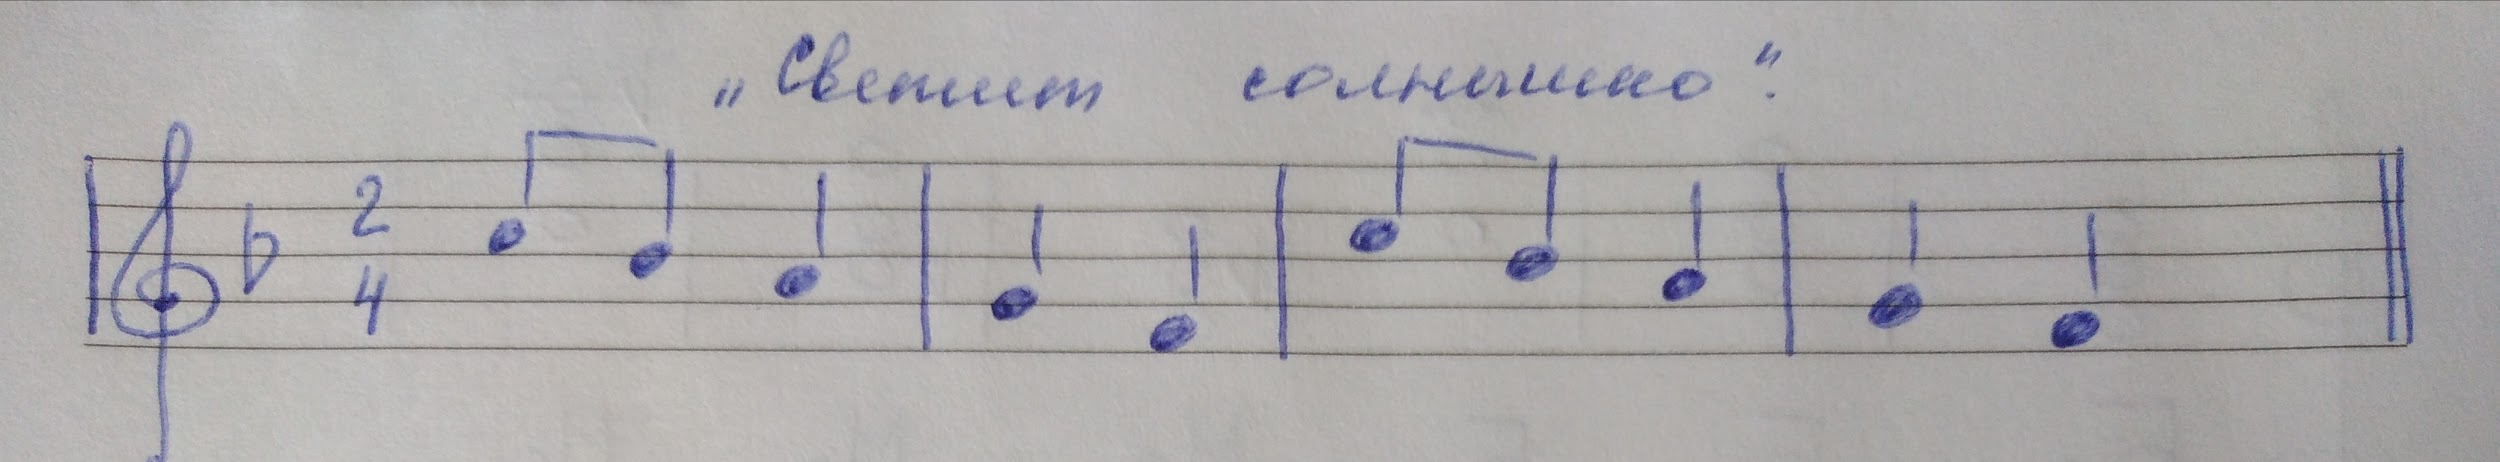 „Светит солнышко".
2
4